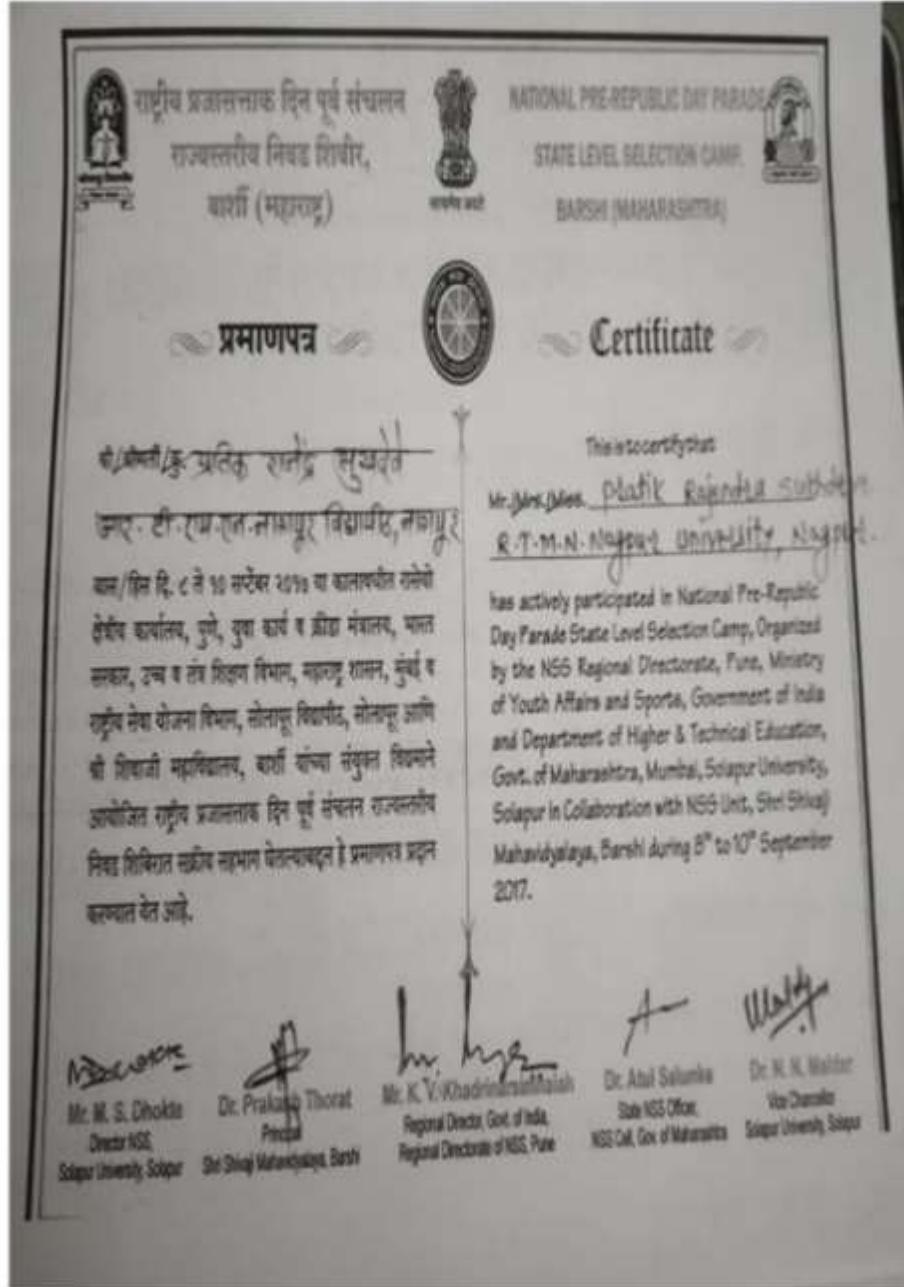 राष्ट्रीय प्रजासत्ताक दिन पूर्व संचलन
राज्यस्तरीय निवड शिबीर,
बार्शी (महाराष्ट्र)
सत्यमेव जयते
NATIONAL PRE-REPUBLIC DAY PARADE
STATE LEVEL SELECTION CAMP,
BARSHI (MAHARASHTRA)
प्रमाणपत्र
Certificate
श्री/श्रीमती/कु. प्रतिक राजेंद्र सुखदेवे
आर. टी. एम. एन. नागपूर विद्यापीठ, नागपूर
यास/हिस दि. ८ ते १० सप्टेंबर २०१७ या कालावधीत रासेयो
क्षेत्रीय कार्यालय, पुणे, युवा कार्य व क्रीडा मंत्रालय, भारत
सरकार, उच्च व तंत्र शिक्षण विभाग, महाराष्ट्र शासन, मुंबई व
राष्ट्रीय सेवा योजना विभाग, सोलापूर विद्यापीठ, सोलापूर आणि
श्री शिवाजी महाविद्यालय, बार्शी यांच्या संयुक्त विद्यमाने
आयोजित राष्ट्रीय प्रजासत्ताक दिन पूर्व संचलन राज्यस्तरीय
निवड शिबिरात सक्रीय सहभाग घेतल्याबद्दल हे प्रमाणपत्र प्रदान
करण्यात येत आहे.
This is to certify that
Mr./Mrs./Miss. Pratik Rajendra Sukhdeve
R.T.M.N. Nagpur University, Nagpur.
has actively participated in National Pre-Republic
Day Parade State Level Selection Camp, Organized
by the NSS Regional Directorate, Pune, Ministry
of Youth Affairs and Sports, Government of India
and Department of Higher & Technical Education,
Govt. of Maharashtra, Mumbai, Solapur University,
Solapur in Collaboration with NSS Unit, Shri Shivaji
Mahavidyalaya, Barshi during 8th to 10th September
2017.
Mr. M. S. Dhokte
Director NSS,
Solapur University, Solapur
Dr. Prakash Thorat
Principal
Shri Shivaji Mahavidyalaya, Barshi
Mr. K. V.
Regional Director, Govt. of India,
Regional Directorate of NSS, Pune
Dr. Atul Salunke
State NSS Officer,
NSS Cell, Gov. of Maharashtra
Dr. N. N. Maldar
Vice Chancellor
Solapur University, Solapur